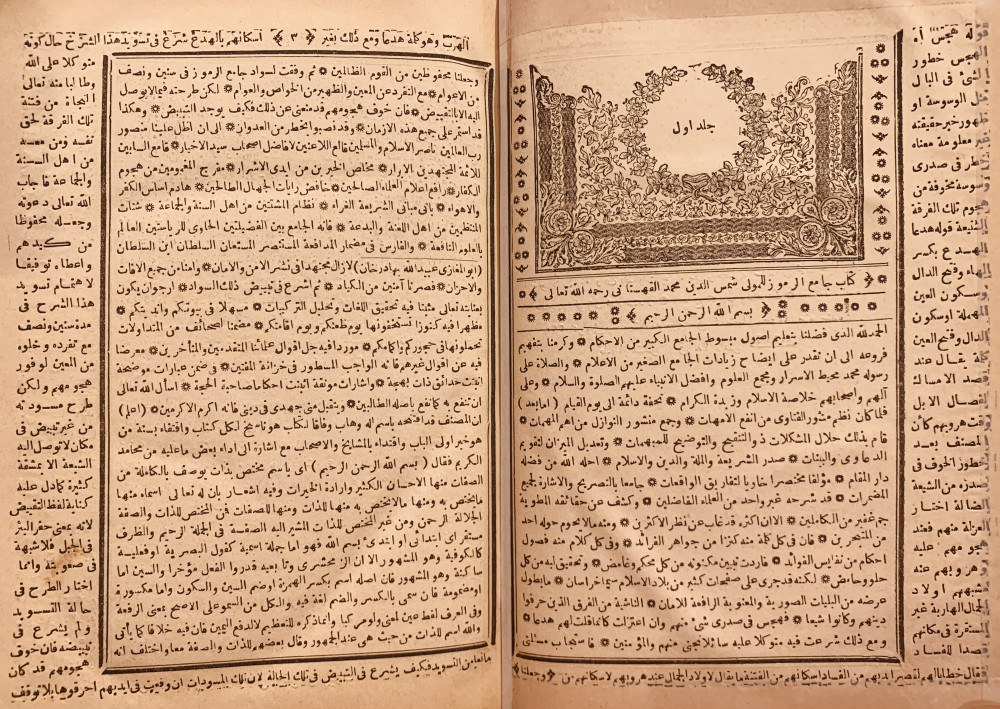 جلد اول
﴿ كتاب جامع الرموز للمولى شمس الدين محمد القهستانى رحمه الله تعالى ﴾
﴿ بسم الله الرحمن الرحيم ﴾
الحمد لله الذى فضلنا بتعليم اصول مبسوط الجامع الكبير من الاحكام ۞ وكرمنا بتفهيم
فروعه الى ان نقدر على ايضاح زيادات الجامع الصغير من الاعلام ۞ والصلاة على
رسوله محمد محيط الاسرار ومجمع العلوم وافضل الانبياء عليهم الصلوة والسلام ۞ وعلى
آلهم واصحابهم خلاصة الاسلام وزبدة الكرام ۞ تحفة دائمة الى يوم القيام (اما بعد)
فلما كان نظم منثور الفتاوى من انفع الامهات ۞ وجمع منشور النوازل من اهم المهمات ۞
قام بذلك حلال المشكلات ذو التنقيح والتوضيح للمبهمات ۞ وتعديل الميزان لتقويم
الدعاوى والبينات ۞ صدر الشريعة والملة والدين والاسلام ۞ احله الله من فضله
دار المقام ۞ مؤلفا مختصرا حاويا لتفاريق الواقعات ۞ جامعا بالتصريح والاشارة لجميع
المضمرات ۞ قد شرحه غير واحد من العلماء الفاضلين ۞ وكشف عن حقائقه المطوية
جم غفير من الكاملين ۞ الا ان اكثره قد غاب عن نظر الاكثرين ۞ ومنه مالا يحوم حوله احد
من المتبحرين ۞ فان فى كل كلمة منه كنزا من جواهر الفرائد ۞ وفى كل كلام منه فصول
احكام من نفايس الفوائد ۞ فاردت تبيين مكنونه من كل محكم وغامض ۞ وتحقيق ابه من كل
حلو وحامض ۞ لكنه قد جرى على صفحات كثير من بلاد الاسلام سيما خراسان ۞ ما يطول
عرضه من البليات الصورية والمعنوية الرافعة للامان ۞ الناشية من الفرق الذين حرفوا
دينهم وكانوا شيعا ۞ فهجس فى صدرى شئ منهم وان اعتزلت كما نقلت لهم هدعا ۞
ومع ذلك شرعت فيه متوكلا عليه سائلا لينجى منهم والمؤمنين ۞ فاستجاب مسئلتى
وجعلنا
قوله هجس اه
الهجس خطور
الشئ فى البال
الوسوسة او
معلومة معناه
خطر فى صدرى
وسوسة مخوفة من
هجوم تلك الفرقة
الشيعة قوله هدعا
الهدع بكسر
الهاء وفتح الدال
وسكون العين
المهملة او سكون
الدال وفتح العين
كلمة يقال عند
قصد الامساك
لفصال الابل
وقت هروبهم كأن
المصنف بعد
خطور الخوف فى
صدره من الشيعة
الضالة اختار
العزلة منهم فعند
هجومهم عليه
وهروبهم عنه
شبههم اولاد
الجمال الهاربة غير
المستقرة فى مكانهم
قصدا للفساد
فقال خطابا لهم
الهرب وهو كلمة هدعا ومع ذلك بغير ﴿ ٣ ﴾ اسكانهم بالهدع شرع فى تسويد هذا الشرح حال كونه
وجعلنا محفوظين من القوم الظالمين ۞ ثم وفقت لسواد جامع الرموز فى سنين ونصف
من الاعوام ۞ مع التفرد عن المعين والظهير من الخواص والعوام ۞ لكن طرحته فيما لا يوصل
اليه الا بالتبييض ۞ فان خوف هجومهم قد منعنى عن ذلك فكيف يوجد التبييض ۞ وهكذا
قد استمر على جميع هذه الازمان ۞ وقد نصبوا بخطر من العدوان ۞ الى ان اظل علينا منصور
رب العالمين ناصر الاسلام والمسلمين قالع اللاعنين لافاضل اصحاب سيد الاخيار ۞ قامع السابين
للائمة المجتهدين الابرار ۞ مخلص الخيرين من ايدى الاشرار ۞ مفرج المغمومين من هجوم
الكفار ۞ رافع اعلام العلماء الصالحين ۞ خافض رايات الجهال الطالحين ۞ هادم اساس الكفر
والاهواء ۞ بانى مبانى الشريعة الغراء ۞ نظام المشتتين من اهل السنة والجماعة ۞ شتات
المنتظمين من اهل اللعنة والبدعة ۞ فانه الجامع بين الفضيلتين الحاوى للرياستين العالم
بالعلوم النافعة ۞ والفارس فى مضمار المدافعة المستنصر المستعان السلطان ابن السلطان
(ابو الغازى عبيد الله بهادر خان) لازال مجتهدا فى نشر الامن والامان ۞ وامنا من جميع الافات
والاحزان ۞ فصرنا آمنين من الكياد ۞ ثم اشرع فى تبييض ذلك السواد ۞ ارجوان يكون
بعنايته تعالى مثبتا فيه تحقيق اللغات وتحليل التركيبات ۞ مسهلا فى بيوتكم واندبتكم ۞
مظهرا فيه كنوزا تستخفونها يوم ظعنكم ويوم اقامتكم ۞ مضمنا صحائف من المتداولات
تحملونها فى حجوركم واكامكم ۞ موردا فيه جل اقوال علمائنا المتقدمين والمتأخرين ۞ معرضا
فيه عن اقوال غيرهم فانه الواجب المسطور فى خزانة المفتين ۞ فى ضمن عبارات موضحة
انبتت حدائق ذات بهجة ۞ واشارات موثقة اثبتت احكاما صاحبة الحجة ۞ اسأل الله تعالى
ان تنفع به كما نفع باصله الطالبين ۞ ويتقبل منى جهدى فى دينى فانه اكرم الاكرمين ۞ (اعلم)
ان المصنف قد افتتحه باسم اله وهاب وفاقا لكتاب هو تاميح لكل كتاب واقتفاء بسنة من
هو خير اولى الالباب واقتداء بالمشايخ والاصحاب مع اشارة الى اداء بعض ما عليه من محامد
الكريم فقال (بسم الله الرحمن الرحيم) اى باسم مختص بذات يوصف بالكاملة من
الصفات منها الاحسان الكثير وارادة الخيرات وفيه اشعار بان له تعالى اسماء منها
ما يختص به ومنها مالا يختص به منها للذات ومنها للصفات فمن المختص للذات والصفة
الجلالة الرحمن ومن غير المختص للذات الشير اليه الصفة فى الجملة الرحيم والظرف
مستقر اى ابتدائى او ابتدئ بسم الله فهو اما جملة اسمية كقول البصرية او فعلية
كالكوفية وهو المشهور الا ان الزمخشرى وتابعيه قدروا الفعل مؤخرا والسين اما
ساكنة وهو المشهور فان اصله اسم بكسر الهمزة او ضم السين والسكون واما مكسورة
او مضمومة فان سمى بالكسر والضم لغة فيه والكل من السمو على الاصح بمعنى الرفعة
وفى العرف لفظ عين لمعنى ولو مركبا وانما ذكره للتعظيم لا لدفع اليمين فان فيه خلافا كما يأتى
والله اسم للذات من حيث هى عند الجمهور وقال بعضهم للذات والصفة معا واختلف انه
متوكلا على الله
وطالبا منه تعالى
النجاة من فتنة
تلك الفرقة لحق
نفسه ومن معه
من اهل السنة
والجماعة فاجاب
الله تعالى دعوته
وجعله محفوظا
من كيدهم
واعطاه توفيقا
لاهتمام تسويد
هذا الشرح فى
مدة سنين ونصف
مع تفرده وخلوه
من المعين لوفور
هجومهم ولكن
طرح مسودته
من غير تبييض فى
مكان لا توصل اليه
الشيعة الا بمشقة
كثيرة كما دل عليه
كناية لفظ التفيض
لانه بمعنى حفر البئر
فى الجبل فلا شبهة
فى صعوبته وانما
اختار الطرح فى
حالة التسويد
ولم يشرع فى
تبييضه فان خوف
هجومهم قد كان
مانعا من التسويد فكيف يشرع فى التبييض فى تلك الحالة لان تلك المسودات ان وقعت فى ايديهم احرقوها بلا توقف